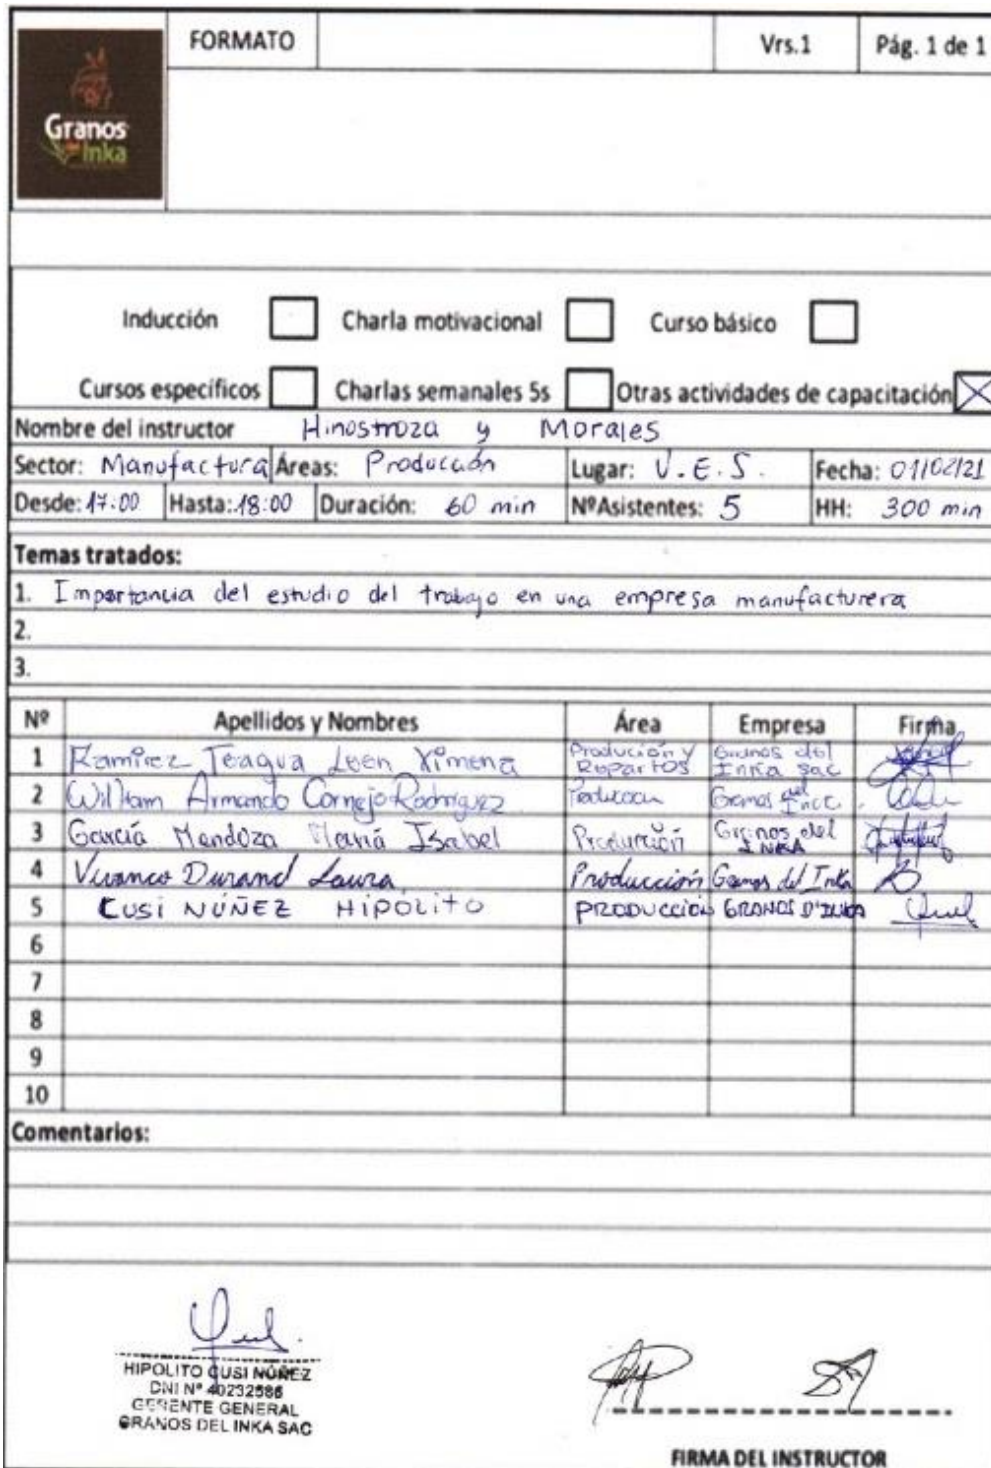 FORMATO Vrs.1 Pág. 1 de 1
Granos
del Inka
Inducción Charla motivacional Curso básico
Cursos específicos Charlas semanales 5s Otras actividades de capacitación
Nombre del instructor Hinostroza y Morales
Sector: Manufactura Áreas: Producción Lugar: V.E.S. Fecha: 01/02/21
Desde: 17:00 Hasta: 18:00 Duración: 60 min NºAsistentes: 5 HH: 300 min
Temas tratados:
1. Importancia del estudio del trabajo en una empresa manufacturera
2.
3.
Nº Apellidos y Nombres Área Empresa Firma
1 Ramirez Teagua Leen Ximena Produción y Repartos Granos del Inka sac
2 William Armando Cornejo Rodriguez Granos del
3 García Mendoza María Isabel Producción Granos del INKA
4 Vivanco Durand Laura Producción Granos del Inka
5 CUSI NÚÑEZ HIPÓLITO PRODUCCIÓN GRANOS D'INKA
6
7
8
9
10
Comentarios:
HIPOLITO CUSI NÚÑEZ
DNI Nº 40232586
GERENTE GENERAL
GRANOS DEL INKA SAC
FIRMA DEL INSTRUCTOR